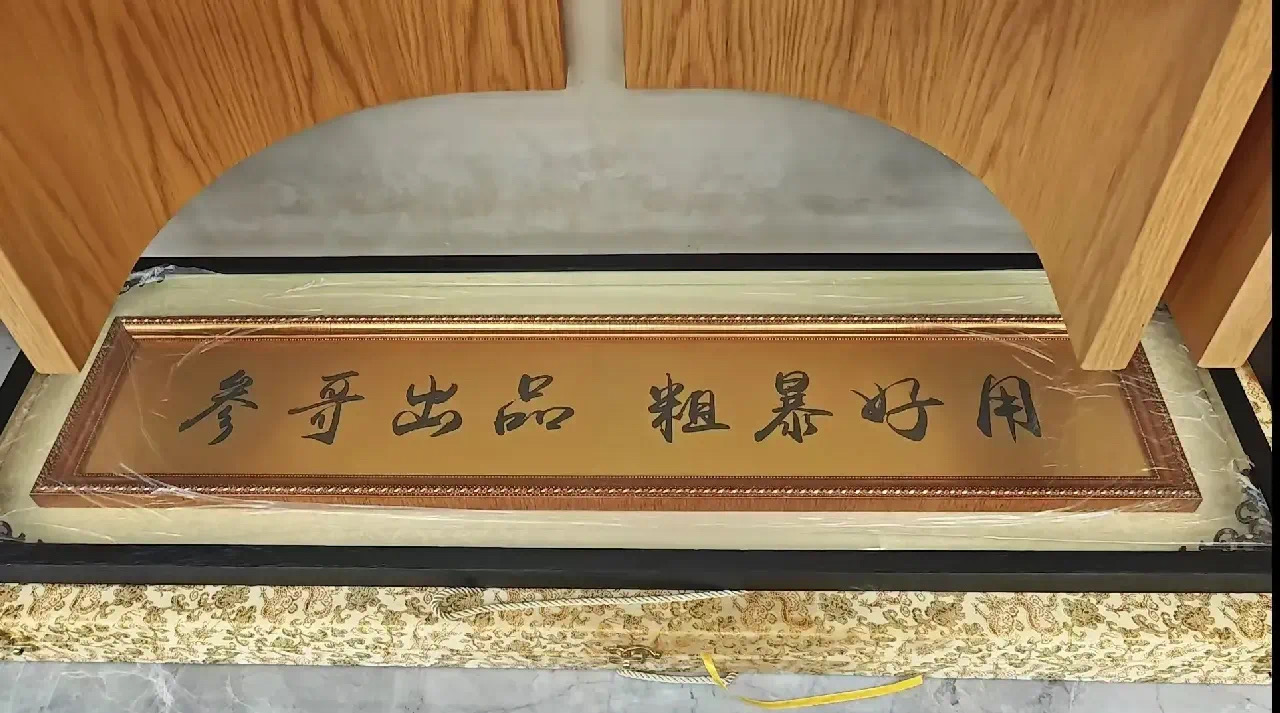 参哥出品 粗暴好用